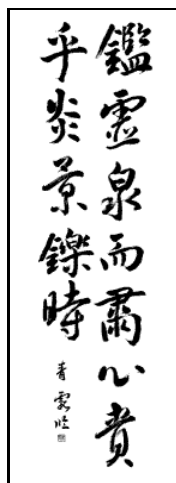 鑑靈泉而肅心貴
乎炎景鑠時
青霞臨